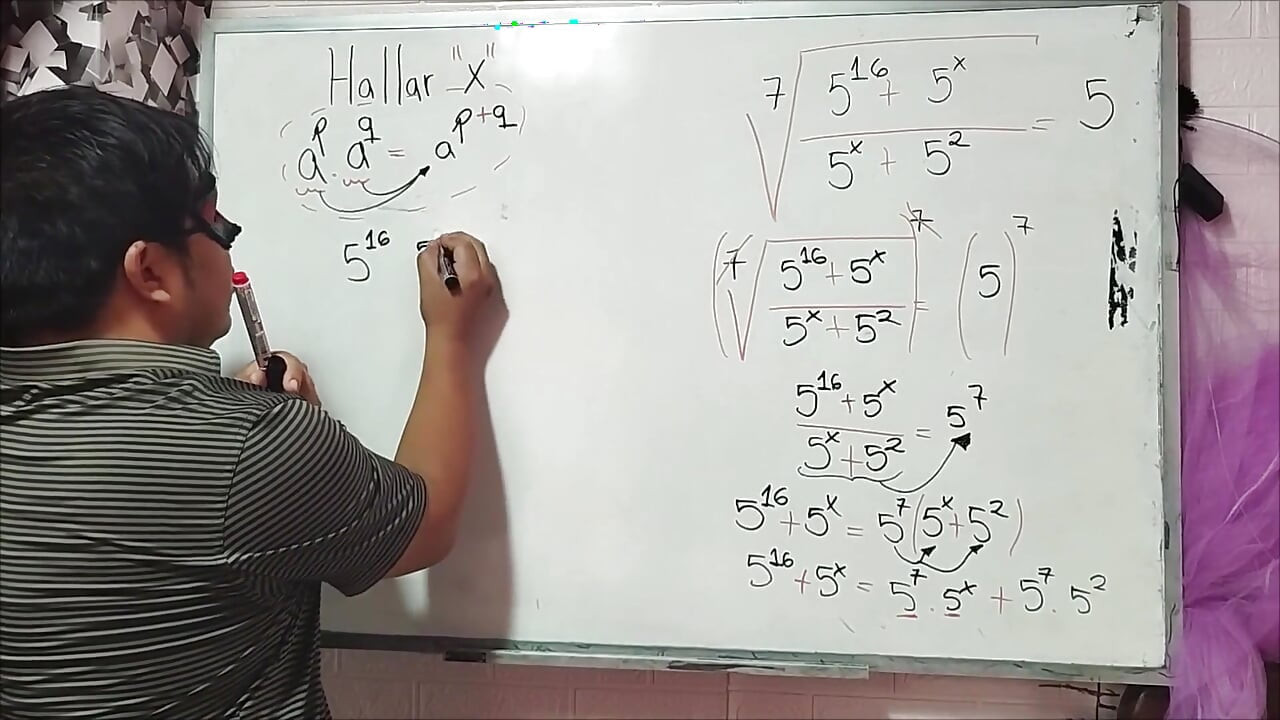 Hallar "X"
a^p . a^q = a^{p+q}
5^{16} 5
\sqrt[7]{\frac{5^{16} + 5^x}{5^x + 5^2}} = 5
(\sqrt[7]{\frac{5^{16} + 5^x}{5^x + 5^2}})^7 = (5)^7
\frac{5^{16} + 5^x}{5^x + 5^2} = 5^7
5^{16} + 5^x = 5^7 (5^x + 5^2)
5^{16} + 5^x = 5^7 . 5^x + 5^7 . 5^2